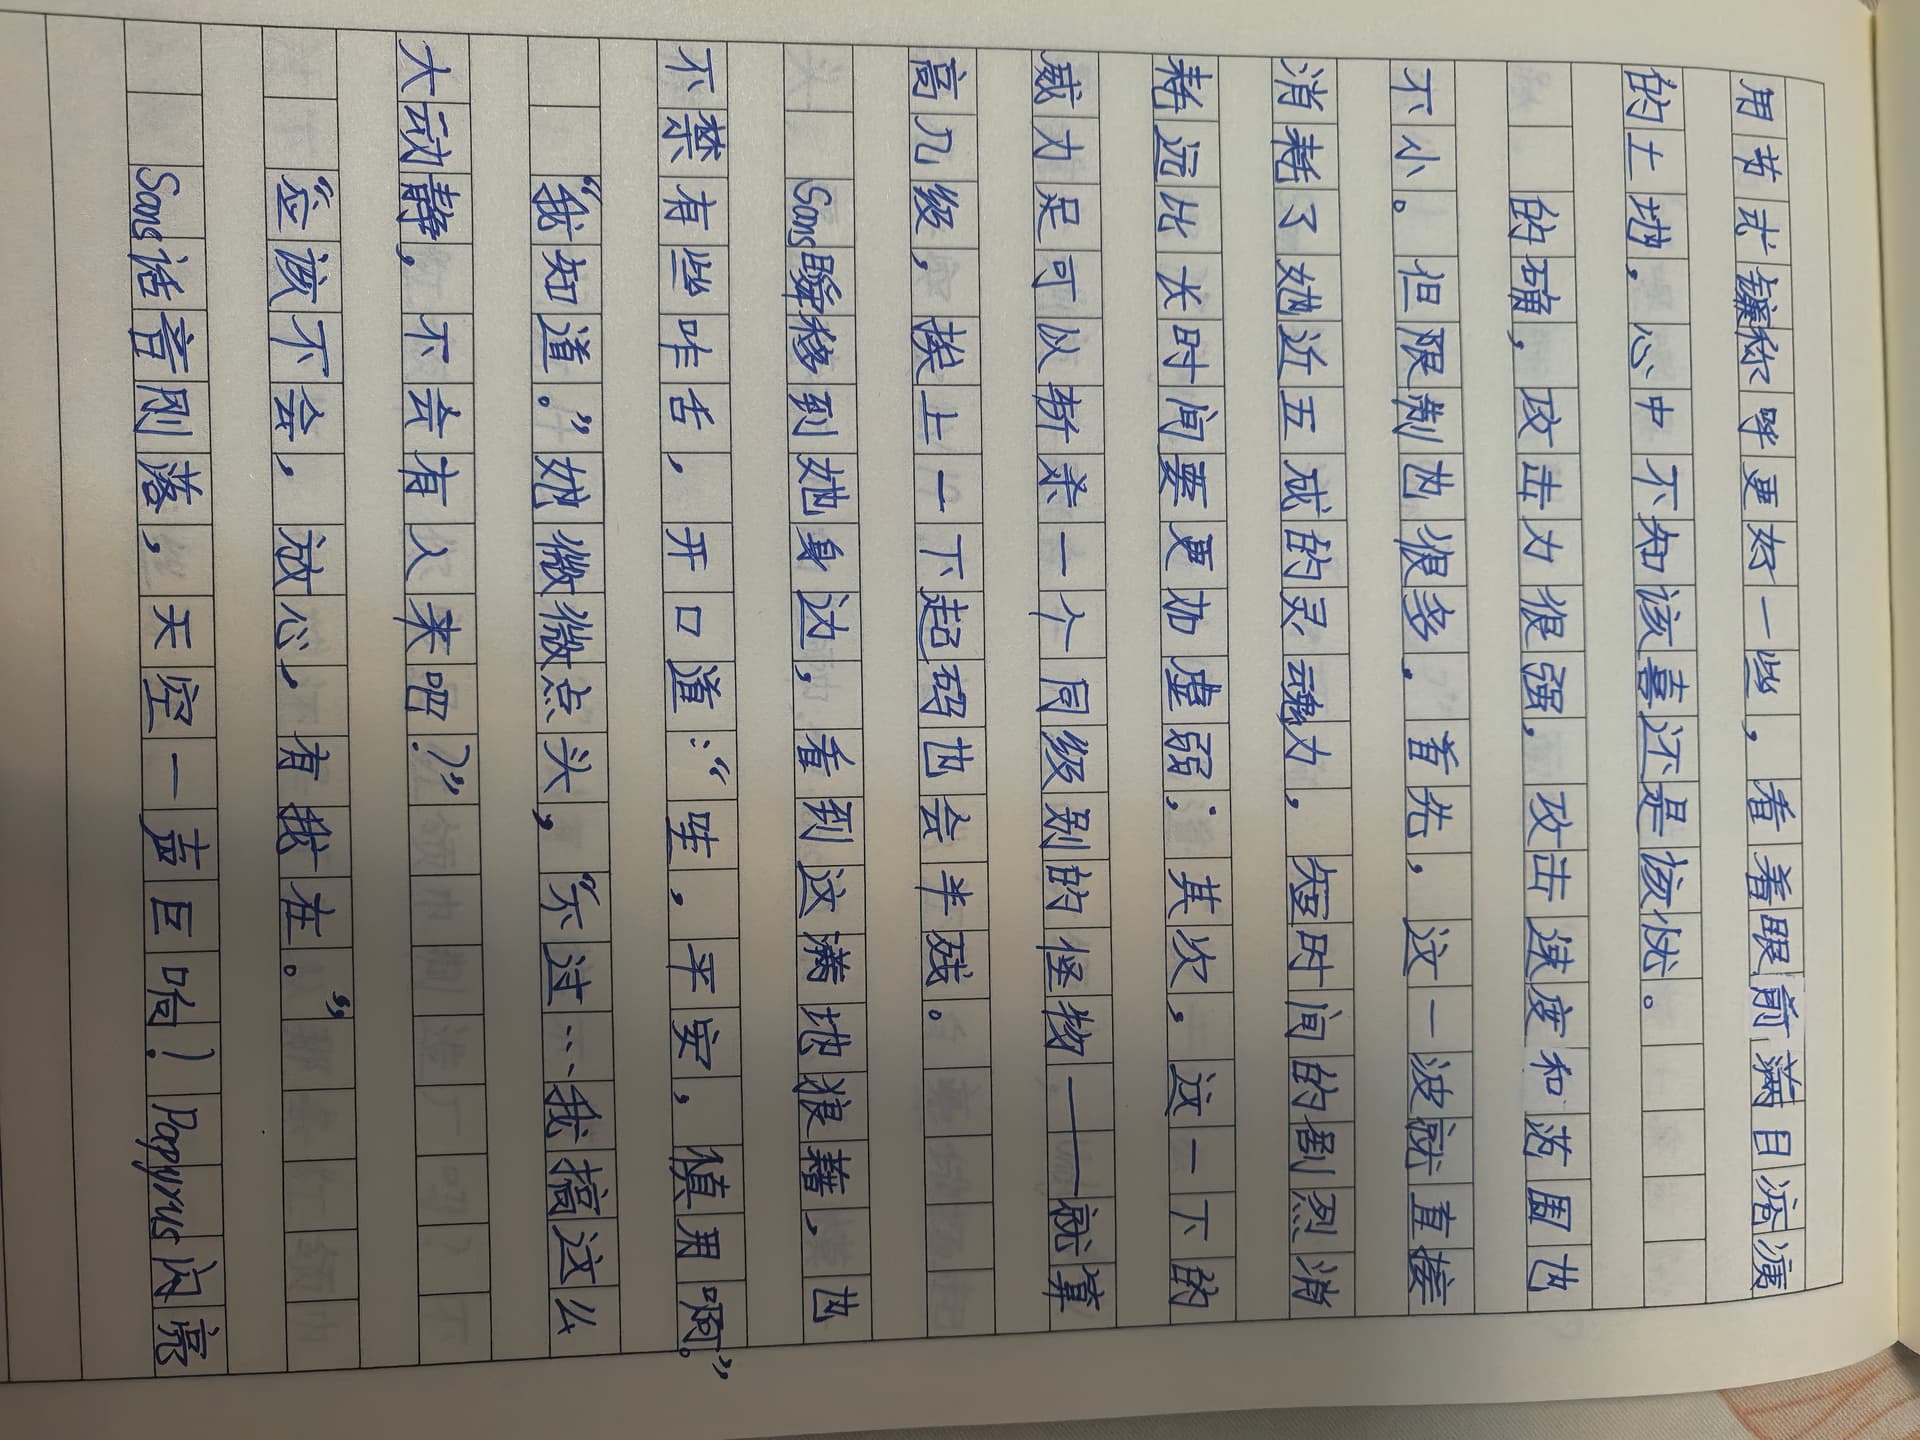 用节式镰称呼更好一些，看着眼前满目疮痍
的土地，心中不知该喜还是该忧。
的确，攻击力很强，攻击速度和范围也
不小。但限制也很多，首先，这一波就直接
消耗了她近五成的灵魂力，短时间的剧烈消
耗远比长时间要更加虚弱；其次，这一下的
威力足可以斩杀一个同级别的怪物——就算
高几级，挨上一下起码也会半残。
Sans瞬移到她身边，看到这满地狼藉，也
不禁有些咋舌，开口道：“哇，平安，慎用啊。”
“我知道。”她微微点头，“不过…我搞这么
大动静，不会有人来吧？”
“应该不会，放心，有我在。”
Sans话音刚落，天空一声巨响！Papyrus闪亮